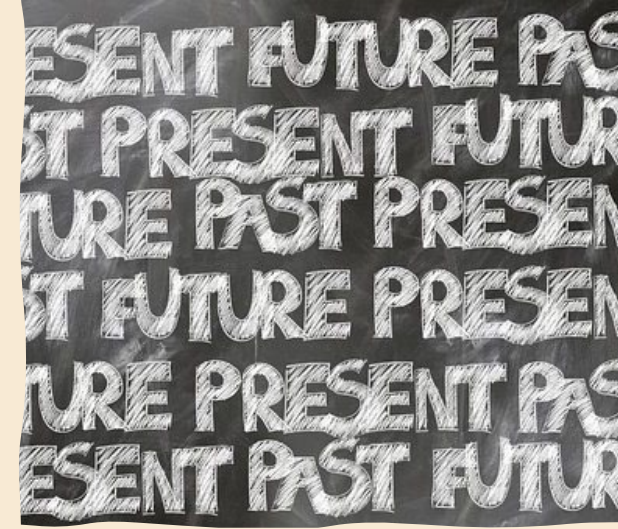 ESENT FUTURE PAS
ST PRESENT FUTUR
TURE PAST PRESEN
ST FUTURE PRESEN
TURE PRESENT PAS
ESENT PAST FUTUR